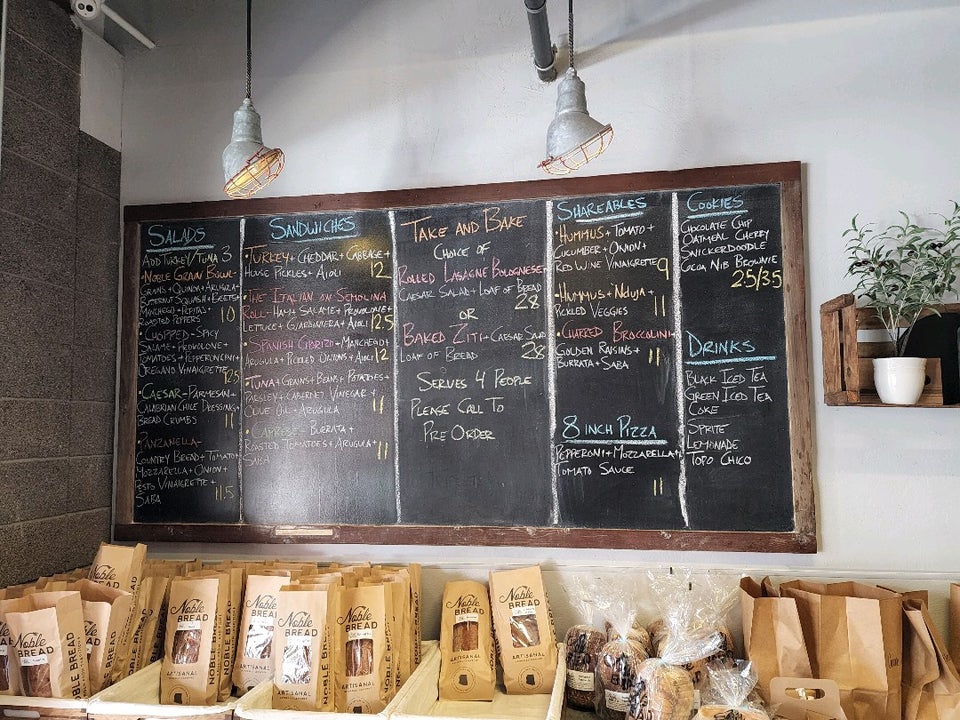 SALADS
ADD TURKEY/TUNA 3
•NOBLE GRAIN BOWL-
GRAINS+QUINOA+ARUGULA+
BUTTERNUT SQUASH+BEETS+
MANCHEGO+PEPITAS+
ROASTED PEPPERS 10
•CHOPPED-SPICY
SALAME+PROVOLONE+
TOMATOES+PEPERONCINI+
OREGANO VINAIGRETTE
12.5
•CAESAR-PARMESAN+
CALABRIAN CHILE DRESSING+
BREAD CRUMBS 11
•PANZANELLA-
COUNTRY BREAD+TOMATO+
MOZZARELLA+ONION+
PESTO VINAIGRETTE+
SABA 11.5
SANDWICHES
•TURKEY+CHEDDAR+CABBAGE+
HOUSE PICKLES+AIOLI 12
•THE ITALIAN ON SEMOLINA
ROLL-HAM+SALAME+PROVOLONE+
LETTUCE+GIARDINIERA+AIOLI 12.5
•SPANISH CHORIZO-MANCHEGO+
ARUGULA+PICKLED ONIONS+AIOLI 12
•TUNA+GRAINS+BEANS+POTATOES+
PARSLEY+CABERNET VINEGAR+
OLIVE OIL+ARUGULA 11
•CAPRESE-BURRATA+
ROASTED TOMATOES+ARUGULA+
SABA 11
TAKE AND BAKE
CHOICE OF
ROLLED LASAGNE BOLOGNESE+
CAESAR SALAD+LOAF OF BREAD
28
OR
BAKED ZITI+CAESAR SALAD
LOAF OF BREAD 28
SERVES 4 PEOPLE
PLEASE CALL TO
PRE ORDER
SHAREABLES
•HUMMUS+TOMATO+
CUCUMBER+ONION+
RED WINE VINAIGRETTE 9
•HUMMUS+NDUJA+
PICKLED VEGGIES 11
•CHARRED BROCCOLINI+
GOLDEN RAISINS+
BURRATA+SABA 11
8 INCH PIZZA
PEPPERONI+MOZZARELLA+
TOMATO SAUCE
11
COOKIES
CHOCOLATE CHIP
OATMEAL CHERRY
SNICKERDOODLE
COCOA NIB BROWNIE
2.5/3.5
DRINKS
BLACK ICED TEA
GREEN ICED TEA
COKE
SPRITE
LEMONADE
TOPO CHICO
Noble
BREAD
Noble
BREAD
ARTISANAL
NOBLE BREAD
Noble
BREAD
ARTISANAL
Noble
BREAD
ARTISANAL
Noble
BREAD
ARTISANAL
Noble
BREAD
ARTISANAL
Noble
BREAD
ARTISANAL